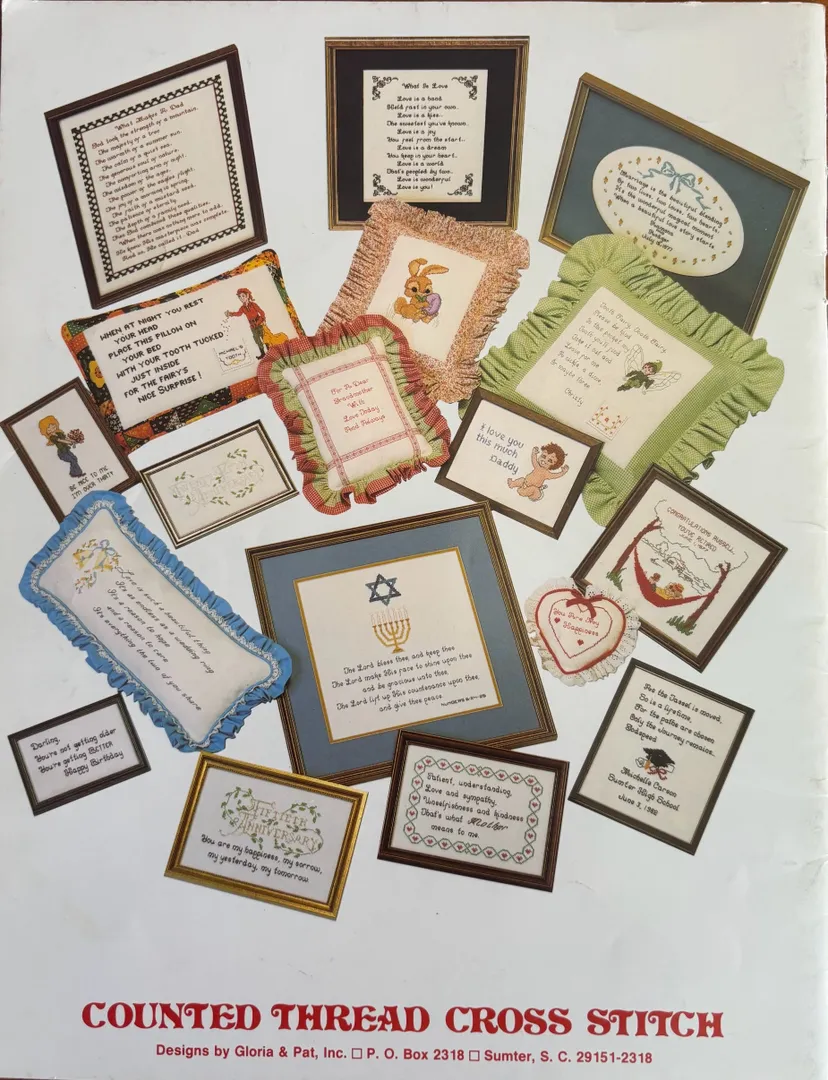 What Makes A Dad
God took the strength of a mountain,
The majesty of a tree
The warmth of a summer sun,
The calm of a quiet sea,
The generous soul of nature,
The comforting arm of night,
The wisdom of the ages,
The power of the eagle's flight,
The joy of a morning in spring
The faith of a mustard seed,
The patience of eternity
The depth of a family need,
Then God combined these qualities,
When there was nothing more to add,
He knew His masterpiece was complete,
And so, He called it Dad
What Is Love
Love is a hand
Held fast in your own..
Love is a kiss..
The sweetest you've known,
Love is a joy
You feel from the start..
Love is a dream
You keep in your heart..
Love is a world
That's peopled by two..
Love is wonderful
Love is you!
Marriage is the beautiful blending
of two lives, two loves, two hearts.
It's the wonderful magical moment
When a beautiful love story starts
July
WHEN AT NIGHT YOU REST
YOUR HEAD
PLACE THIS PILLOW ON
YOUR BED
WITH YOUR TOOTH TUCKED
JUST INSIDE
FOR THE FAIRY'S
NICE SURPRISE!
MICHAEL'S
TOOTH
Tooth Fairy, Tooth Fairy,
Christy
For To Dear
Grandmother
With
Love Today
And Always
BE NICE TO ME
I'M OVER THIRTY
I love you
this much
Daddy
CONGRATULATIONS RUSSELL
YOU'VE RETIRED
Love is such a beautiful thing
It's as endless as a wedding ring
It's a reason to hope
and a reason to care
It's everything the two of you share
The Lord bless thee, and keep thee
The Lord make His face to shine upon thee
and be gracious unto thee,
The Lord lift up His countenance upon thee,
and give thee peace.
NUMBERS 6:24-26
You Are My
Happiness
Darling,
You're not getting older
You're getting BETTER
Happy Birthday
FIFTIETH
ANNIVERSARY
You are my happiness, my sorrow,
my yesterday, my tomorrow
Patient, understanding,
Love and sympathy,
Unselfishness and kindness
That's what Mother
means to me
For the Tassel is moved,
So is a lifetime,
For the paths are chosen
Only the journey remains..
Godspeed
Michelle Carson
Sumter High School
June 2, 1980
COUNTED THREAD CROSS STITCH
Designs by Gloria & Pat, Inc. □ P. O. Box 2318 □ Sumter, S. C. 29151-2318